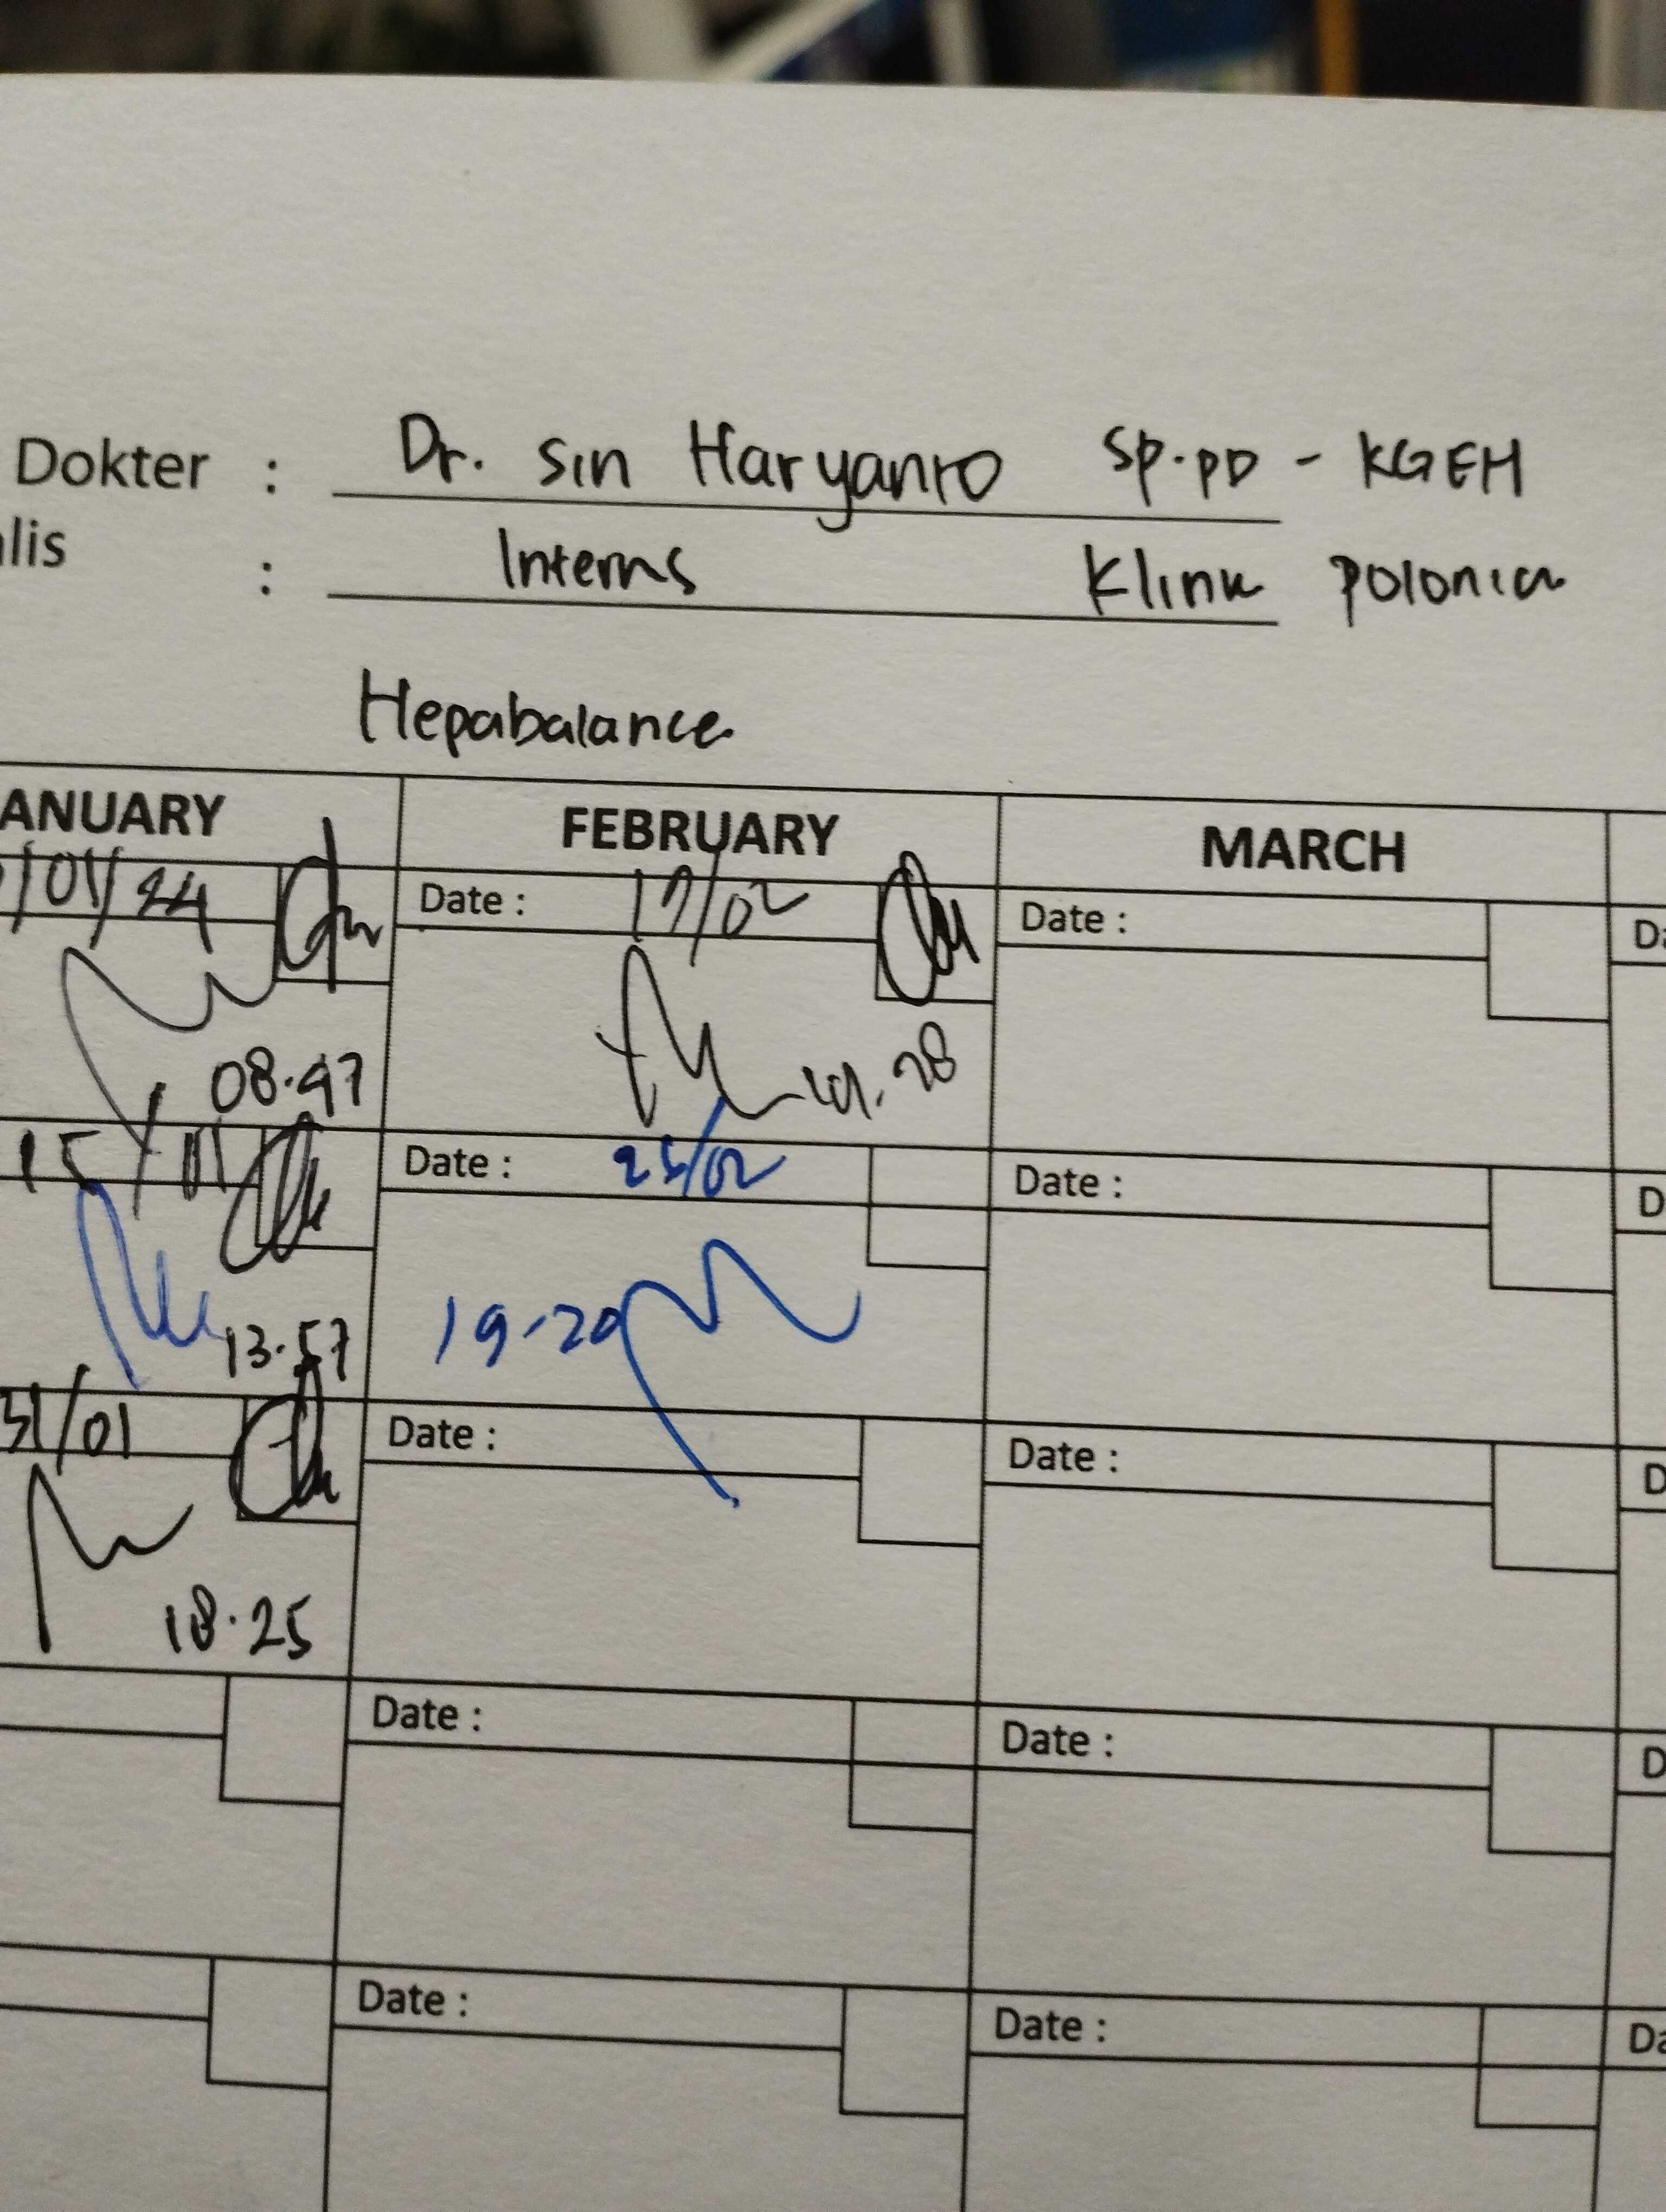 Dokter : Dr. Sin Haryanto Sp.PD - KGEH
alis : Interns Klinik Polonia
Hepabalance
ANUARY FEBRUARY MARCH
/01/24 Date : 17/02 Date : Da
08.47
15/01 Date : 25/02 Date : D
13.57 19-20
31/01 Date : Date : D
18.25
Date : Date : D
Date : Date : Da